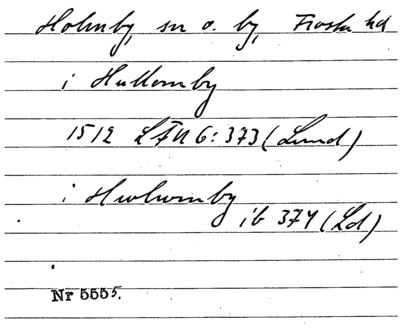 Holmby, sn o. by, Frosta hd
i Hullomby
1512 LÄU 6:373 (Lund)
i Hwlwmby
ib 374 (Ld)
Nr 5555.